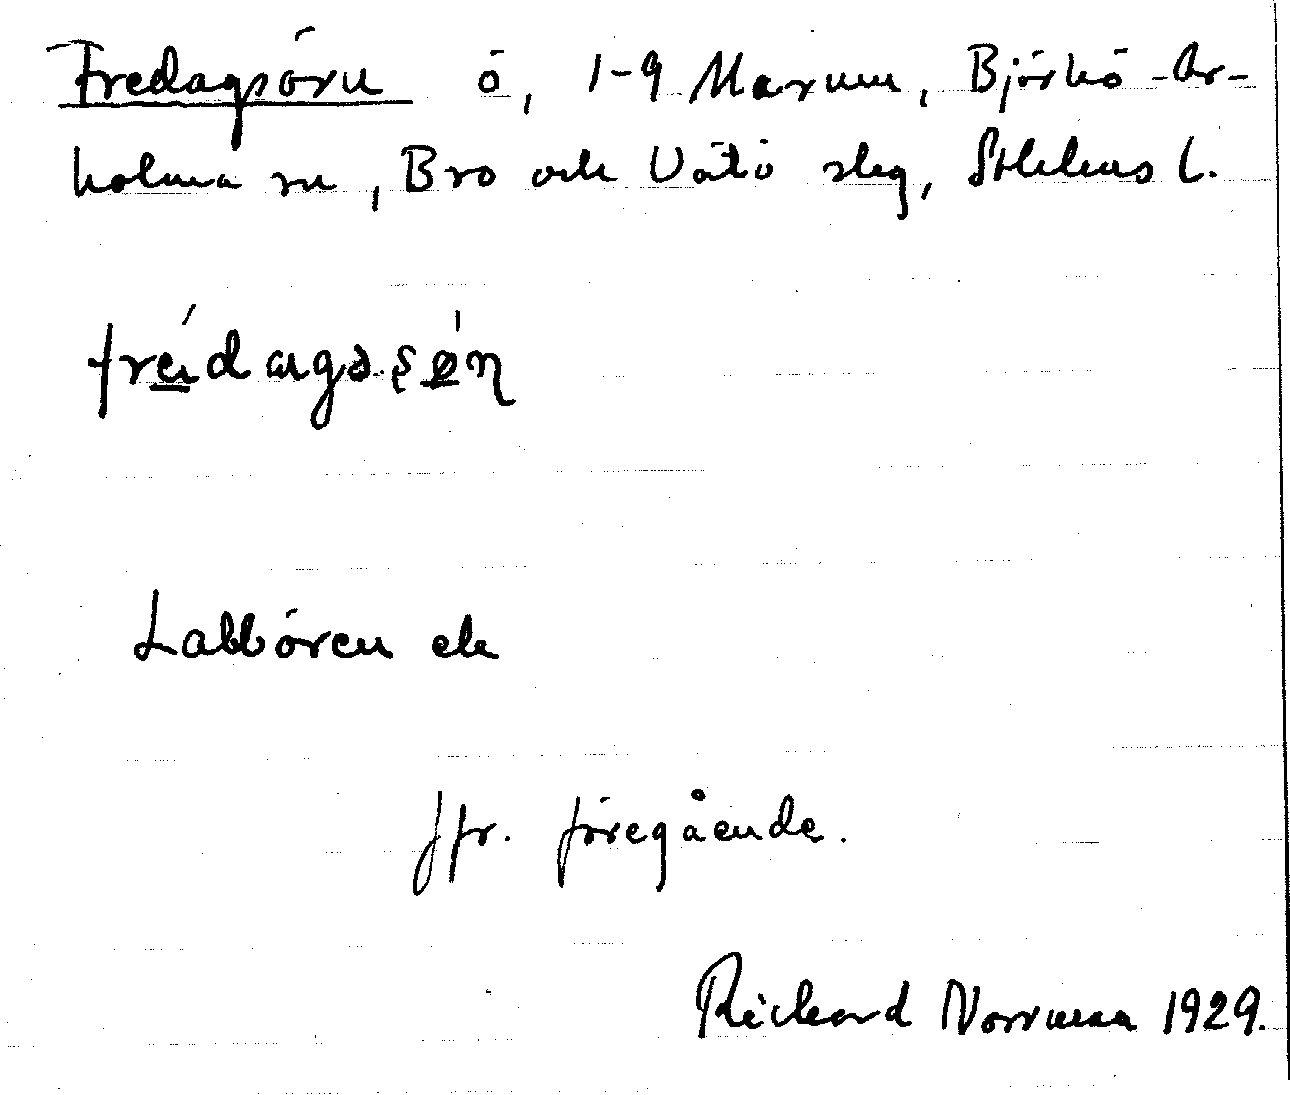 Fredagsörn ö, 1-9 Marum, Björkö-Ar-
holma sn, Bro och Vätö slag, Sthlms l.
fréidagsə
Labbören el
Jfr. föregående.
Richard Norrman 1929.